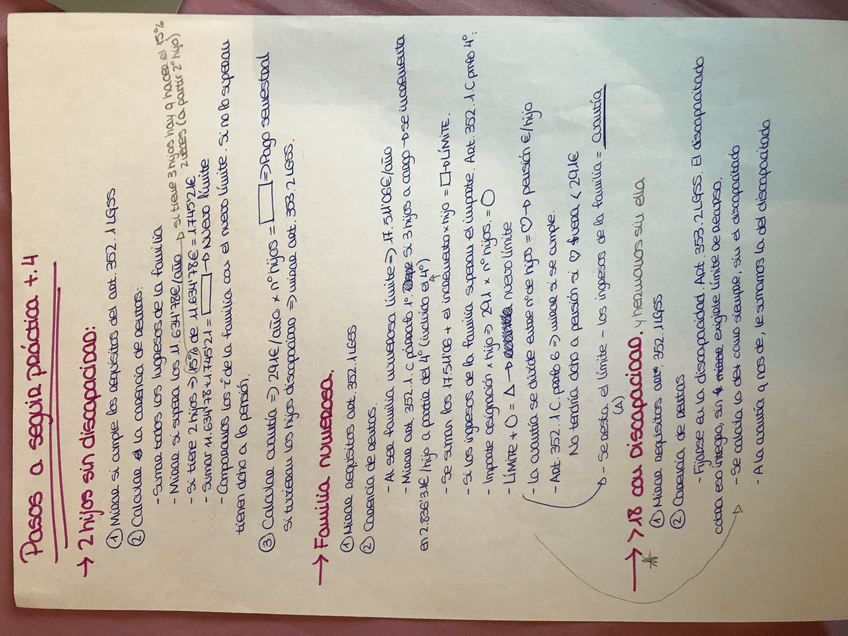 Pasos a seguir práctica t.4
→ 2 hijos sin discapacidad:
① Mirar si cumple los requisitos del art. 352.1 LGSS
② Calcular la carencia de rentas:
- Sumar todos los ingresos de la familia
- Mirar si supera los 11.634'78€/año → si tiene 3 hijos hay q hacer el 15%
2 veces (a partir 2º hijo)
- Si tiene 2 hijos ⇒ 15% de 11.634'78€ = 1.745'21€
- Sumar 11.634'78 + 1.745'21 = □ → nuevo límite
- Comparamos los i de la familia con el nuevo límite. Si no lo superan
tienen dcho a la pensión.
③ Calcular cuantía ⇒ 291€/año x nº hijos = □ ⇒ Pago semestral
Si tuvieran los hijos discapacidad ⇒ mirar art. 353.2 LGSS.
→ Familia numerosa.
① Mirar requisitos art. 352.1 LGSS
② Carencia de rentas.
- Al ser familia numerosa límite ⇒ 17.511'06€/año
- Mirar art. 352.1.C párrafo 1º. Si 3 hijos a cargo → se incrementa
en 2.836'31€ / hijo a partir del 4º (incluido el 4º)
- Se suman los 17.511'06 + el incremento x hijo = □ → LÍMITE.
- Si los ingresos de la familia superan el importe. Art. 352.1.C prrfo 4º:
- Importe asignación x hijo ⇒ 291 x nº hijos. = ○
- Límite + ○ = △ → nuevo límite
- La cuantía se divide entre nº de hijos = ♡ → pensión €/hijo
- Art. 352.1.C prrfo 6 ⇒ mirar si se cumple.
No tendría dcho a pensión si ♡ fuera < 29'1€
→ - Se resta el límite - los ingresos de la familia = cuantía
→ > 18 con Discapacidad. (A) y hermanos sin ella
① Mirar requisitos art. 352.1 LGSS
② Carencia de rentas
- Fijarse en la discapacidad. Art. 353.2 LGSS. El discapacitado
cobra eso íntegro, sin exigirle límite de recurso.
- Se calcula la det como siempre, sin el discapacitado
- A la cuantía q nos de, le sumamos la del discapacitado